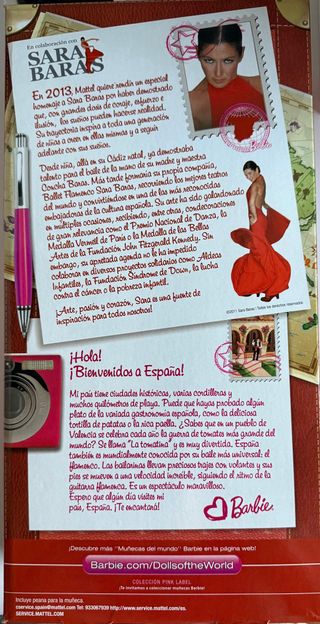 En colaboración con
SARA
BARAS
En 2013, Mattel quiere rendir un especial
homenaje a Sara Baras por haber demostrado
que, con grandes dosis de coraje, esfuerzo e
ilusión, los sueños pueden hacerse realidad.
Su trayectoria inspira a toda una generación
de niñas a creer en ellas mismas y a seguir
adelante con sus sueños.
Desde niña, allá en su Cádiz natal, ya demostraba
talento para el baile de la mano de su madre y maestra
Concha Baras. Más tarde formaría su propia compañía,
Ballet Flamenco Sara Baras, recorriendo los mejores teatros
del mundo y convirtiéndose en una de las más reconocidas
embajadoras de la cultura española. Su arte ha sido galardonado
en múltiples ocasiones, recibiendo, entre otras, condecoraciones
de gran relevancia como el Premio Nacional de Danza, la
Medalla Vermeil de París o la Medalla de las Bellas
Artes de la Fundación John Fitzgerald Kennedy. Sin
embargo, su apretada agenda no le ha impedido
colaborar en diversos proyectos solidarios como Aldeas
Infantiles, la Fundación Síndrome de Down, la lucha
contra el cáncer o la pobreza infantil.
¡Arte, pasión y corazón, Sara es una fuente de
inspiración para todos nosotros!
©2011 Sara Baras. Todos los derechos reservados.
¡Hola!
¡Bienvenidos a España!
Mi país tiene ciudades históricas, varias cordilleras y
muchos quilómetros de playa. Puede que hayas probado algún
plato de la variada gastronomía española, como la deliciosa
tortilla de patatas o la rica paella. ¿Sabes que en un pueblo de
Valencia se celebra cada año la guerra de tomates más grande del
mundo? Se llama "La tomatina" y es muy divertida. España
también es mundialmente conocida por su baile más universal: el
flamenco. Las bailarinas llevan preciosos trajes con volantes y sus
pies se mueven a una velocidad increíble, siguiendo el ritmo de la
guitarra flamenca. Es un espectáculo maravilloso.
Espero que algún día visites mi
país, España. ¡Te encantará!
Barbie
¡Descubre más "Muñecas del mundo" Barbie en la página web!
Barbie.com/DollsoftheWorld
COLECCIÓN PINK LABEL
¡Te invitamos a coleccionar muñecas Barbie!
Incluye peana para la muñeca.
cservice.spain@mattel.com Tel: 933067939 http://www.service.mattel.com/es.
SERVICE.MATTEL.COM